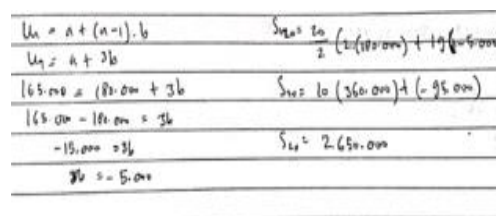 Un = a + (n-1).b
U4 = a + 3b
165.000 = 180.000 + 3b
165.000 - 180.000 = 3b
-15.000 = 3b
b = -5.000
S20 = 20/2 (2(180.000) + 19(-5.000
S20 = 10 (360.000) + (-95.000)
S20 = 2.650.000